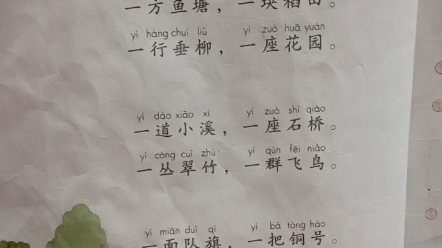 一方鱼塘，一块稻田。
yì háng chuí liǔ yí zuò huā yuán
一行垂柳，一座花园。
yí dào xiǎo xī yí zuò shí qiáo
一道小溪，一座石桥。
yì cóng cuì zhú yì qún fēi niǎo
一丛翠竹，一群飞鸟。
yí miàn duì qí yì bǎ tóng hào
一面队旗，一把铜号。